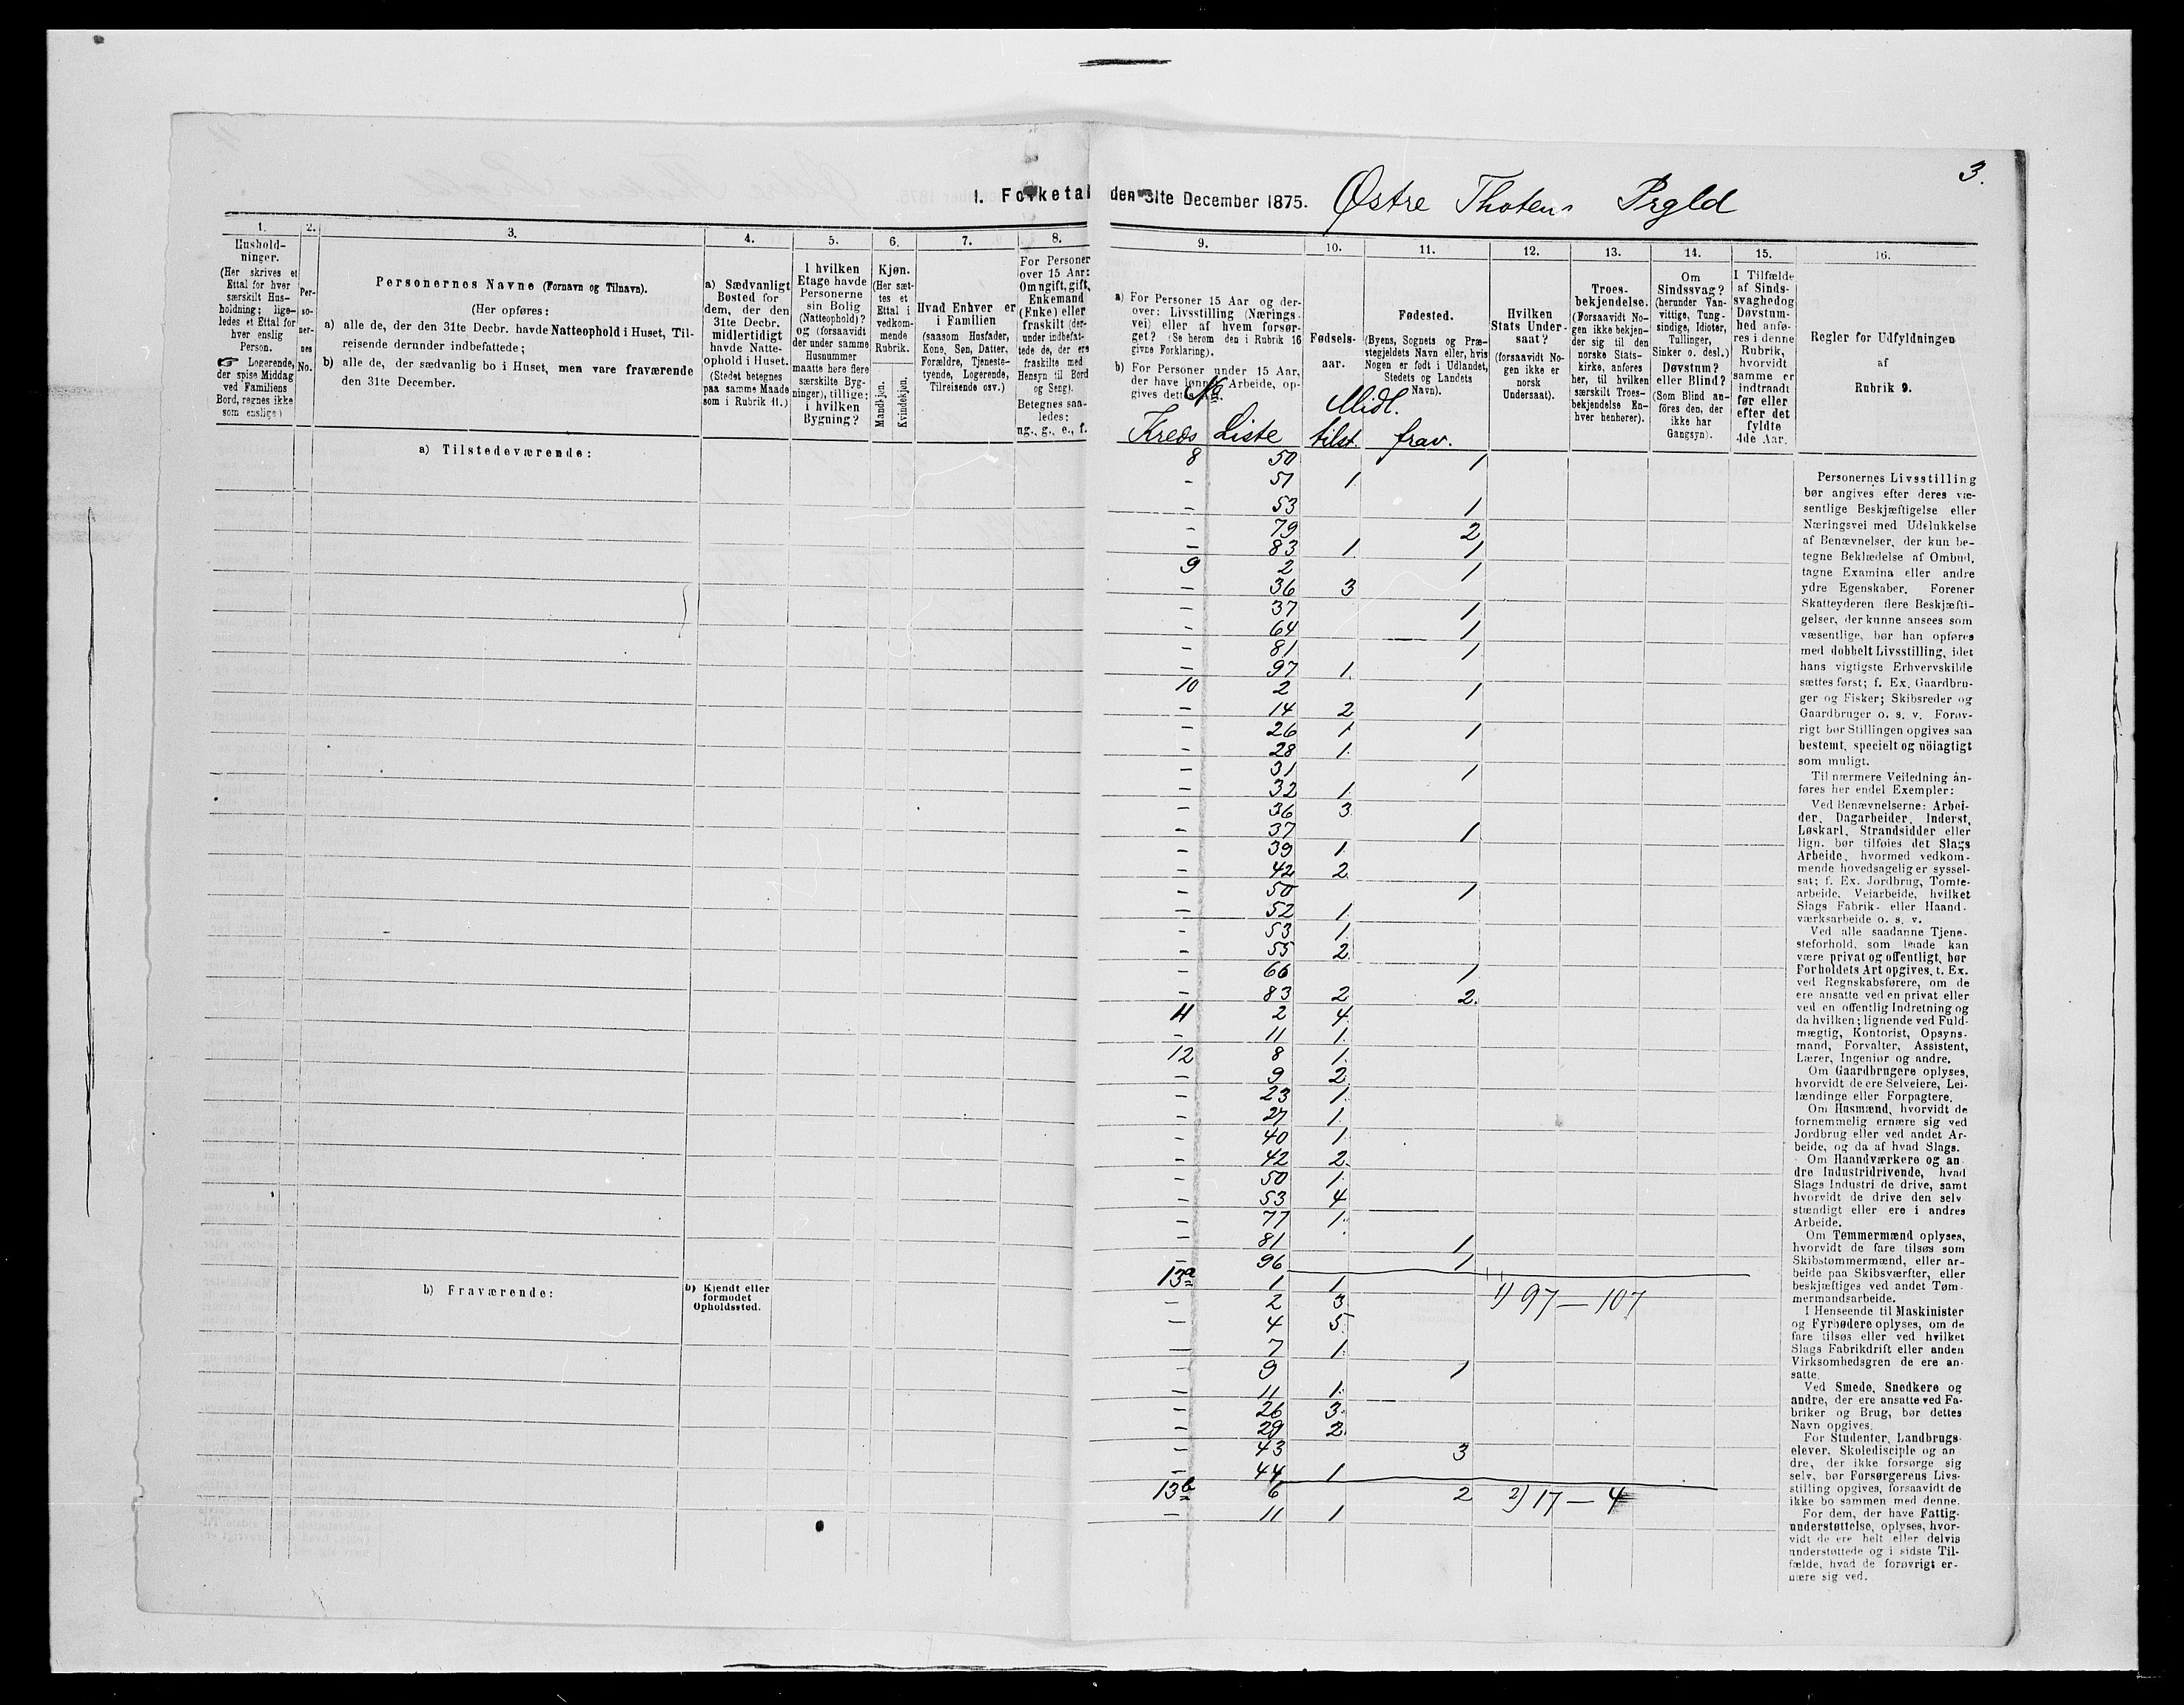 3.
1. Folketal den 31te December 1875. Østre Thotens Prgld
1.
Hushold-
ninger.
(Her skrives et
Ettal for hver
særskilt Hus-
holdning; lige-
ledes et Ettal for
hver enslig
Person.
☞ Logerende,
der spise Middag
ved Familiens
Bord, regnes ikke
som enslige)
2.
Per-
so-
ner-
nes
No.
3.
Personernes Navne (Fornavn og Tilnavn).
(Her opføres:
a) alle de, der den 31te Decbr. havde Natteophold i Huset, Til-
reisende derunder indbefattede;
b) alle de, der sædvanlig bo i Huset, men vare fraværende
den 31te December.
4.
a) Sædvanligt
Bosted for
dem, der den
31te Decbr.
midlertidigt
havde Natte-
ophold i Huset.
(Stedet betegnes
paa samme Maade
som i Rubrik 11.)
5.
I hvilken
Etage havde
Personerne
sin Bolig
(Natteophold)?
og (forsaavidt
der under samme
Husnummer
maatte høre flere
særskilte Byg-
ninger), tillige:
i hvilken
Bygning?
6.
Kjøn.
(Her sæt-
tes et
Ettal i
vedkom-
mende
Rubrik.
Mandkjøn.
Kvindekjøn.
7.
Hvad Enhver er
i Familien
(saasom Husfader,
Kone, Søn, Datter,
Forældre, Tjeneste-
tyende, Logerende,
Tilreisende osv.)
8.
For Personer
over 15 Aar:
Om ugift, gift,
Enkemand
(Enke) eller
fraskilt (der-
under indbefat-
tede de, der ere
fraskilte med
Hensyn til Bord
og Seng).
Betegnes saa-
ledes:
ug., g., e., f.
9.
a) For Personer 15 Aar og der-
over: Livsstilling (Nærings-
vei) eller af hvem forsør-
get? (Se herom den i Rubrik 16
givne Forklaring).
b) For Personer under 15 Aar,
der have lønnet Arbeide, op-
gives dette
10.
Fødsels-
aar.
11.
Fødested.
(Byens, Sognets og Præ-
stegjeldets Navn eller, hvis
Nogen er født i Udlandet,
Stedets og Landets
Navn).
12.
Hvilken
Stats Under-
saat?
(forsaavidt No-
gen ikke er
norsk
Undersaat).
13.
Troes-
bekjendelse.
(Forsaavidt No-
gen ikke bekjen-
der sig til den
norske Stats-
kirke, anføres
her, til hvilken
særskilt Troes-
bekjendelse En-
hver henhører).
14.
Om
Sindssvag?
(herunder Van-
vittige, Tung-
sindige, Idioter,
Tullinger,
Sinker o. desl.)
Døvstum?
eller Blind?
(Som Blind an-
føres den, der
ikke har
Gangsyn).
15.
I Tilfælde
af Sinds-
svaghed og
Døvstum-
hed anfø-
res i denne
Rubrik,
hvorvidt
samme er
indtraadt
før eller
efter det
fyldte
4de Aar.
16.
Regler for Udfyldningen
af
Rubrik 9.
Midl.
Kreds Liste tilst. frav.
a) Tilstedeværende:
8 50 1
- 51 1
- 53 1
- 79 2
- 83 1 1
9 2 1
- 36 3
- 37 1
- 64 1
- 81 1
- 97 1
10 2 1
- 14 2
- 26 1 1
- 28 1
- 31 1
- 32 1
- 36 3
- 37 1
- 39 1
- 42 2
- 50 1
- 52 1
- 53 1
- 55 2
- 66 1
- 83 2 2
11 2 4
- 11 1
12 8 1
- 9 2
- 23 1
- 27 1
- 40 1
- 42 2
- 50 1
- 53 4
- 77 1
- 81 1
- 96 1
13a 1 1
- 2 3 1) 97 — 107
- 4 5
- 7 1
- 9 1
- 11 1
- 26 3
- 29 2
- 43 3
- 44 1
13b 6 2 2) 17 — 4
- 11 1
b) Fraværende:
b) Kjendt eller
formodet
Opholdssted.
Personernes Livsstilling
bør angives efter deres væ-
sentlige Beskjæftigelse eller
Næringsvei med Udelukkelse
af Benævnelser, der kun be-
tegne Beklædelse af Ombud,
tagne Examina eller andre
ydre Egenskaber. Forener
Skatteyderen flere Beskjæfti-
gelser, der kunne ansees som
væsentlige, bør han opføres
med dobbelt Livsstilling, idet
hans vigtigste Erhvervskilde
sættes først; f. Ex. Gaardbru-
ger og Fisker; Skibsreder og
Gaardbruger o. s. v. Forøv-
rigt bør Stillingen opgives saa
bestemt, specielt og nöiagtigt
som muligt.
Til nærmere Veiledning an-
føres her endel Exempler:
Ved Benævnelserne: Arbei-
der, Dagarbeider, Inderst,
Løskarl, Strandsidder eller
lign. bør tilføies det Slags
Arbeide, hvormed vedkom-
mende hovedsagelig er syssel-
sat; f. Ex. Jordbrug, Tomte-
arbeide, Veiarbeide, hvilket
Slags Fabrik- eller Haand-
værksarbeide o. s. v.
Ved alle saadanne Tjene-
steforhold, som baade kan
være privat og offentligt, bør
Forholdets Art opgives, t. Ex.
ved Regnskabsførere, om de
ere ansatte ved en privat eller
ved en offentlig Indretning og
da hvilken; lignende ved Fuld-
mægtig, Kontorist, Opsyns-
mand, Forvalter, Assistent,
Lærer, Ingeniør og andre.
Om Gaardbrugere oplyses,
hvorvidt de ere Selveiere, Lei-
lændinge eller Forpagtere.
Om Husmænd, hvorvidt de
fornemmelig ernære sig ved
Jordbrug eller ved andet Ar-
beide, og da af hvad Slags.
Om Haandværkere og an
dre Industridrivende, hvad
Slags Industri de drive, samt
hvorvidt de drive den selv
stændigt eller ere i andres
Arbeide.
Om Tømmermænd oplyses,
hvorvidt de fare tilsøs som
Skibstømmermænd, eller ar-
beide paa Skibsværfter, eller
beskjæftiges ved andet Tøm-
mermandsarbeide.
I Henseende til Maskinister
og Fyrbødere oplyses, om de
fare tilsøs eller ved hvilket
Slags Fabrikdrift eller anden
Virksomhedsgren de ere an-
satte.
Ved Smede, Snedkere og
andre, der ere ansatte ved Fa-
briker og Brug, bør dettes
Navn opgives.
For Studenter, Landbrugs-
elever, Skoledisciple og an
dre, der ikke forsørge sig
selv, bør Forsørgerens Livs-
stilling opgives, forsaavidt de
ikke bo sammen med denne.
For dem, der have Fattig-
understøttelse, oplyses, hvor-
vidt de ere helt eller delvis
understøttede og i sidste Til-
fælde, hvad de forøvrigt er-
nære sig ved.